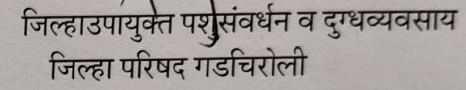 जिल्हाउपायुक्त पशुसंवर्धन व दुग्धव्यवसाय
जिल्हा परिषद गडचिरोली